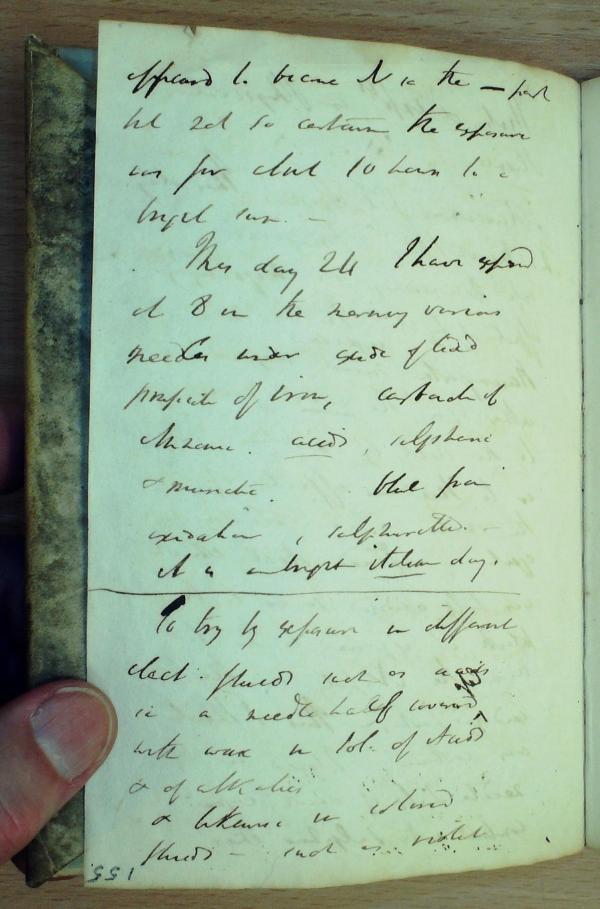 appeared to become N in the — part
but not so certain the exposure
was for about 10 hours to a
bright sun. —
This day 24 I have exposed
at 8 in the morning various
needles under oxide of lead
prussiate of iron, carbonate of
acids, sulphuric
& muriatic. blue from
oxidation, sulphurette. —
it is a bright italian day.
To try by exposure in different
elect. fluids such as acids
in a needle half covered
with wax in sol: of Acids
& of alkalies
& likewise in colored
fluids — such as violet
155